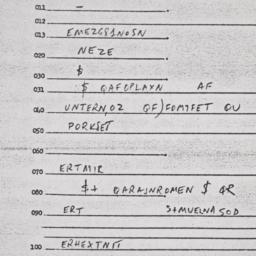 011 -
012
013 EMEZG81NOSN
020 NEZE
030 $
031 $ QAFOPLAYN AF
040 VNTERN,OZ QF)FOMTFET QU
050 PORKSET
060
070 ERTMIR
080 $+ QARAJNROMEN $ QR
090 ERT S+MUELNA SOD
100 ERHEXTNIT